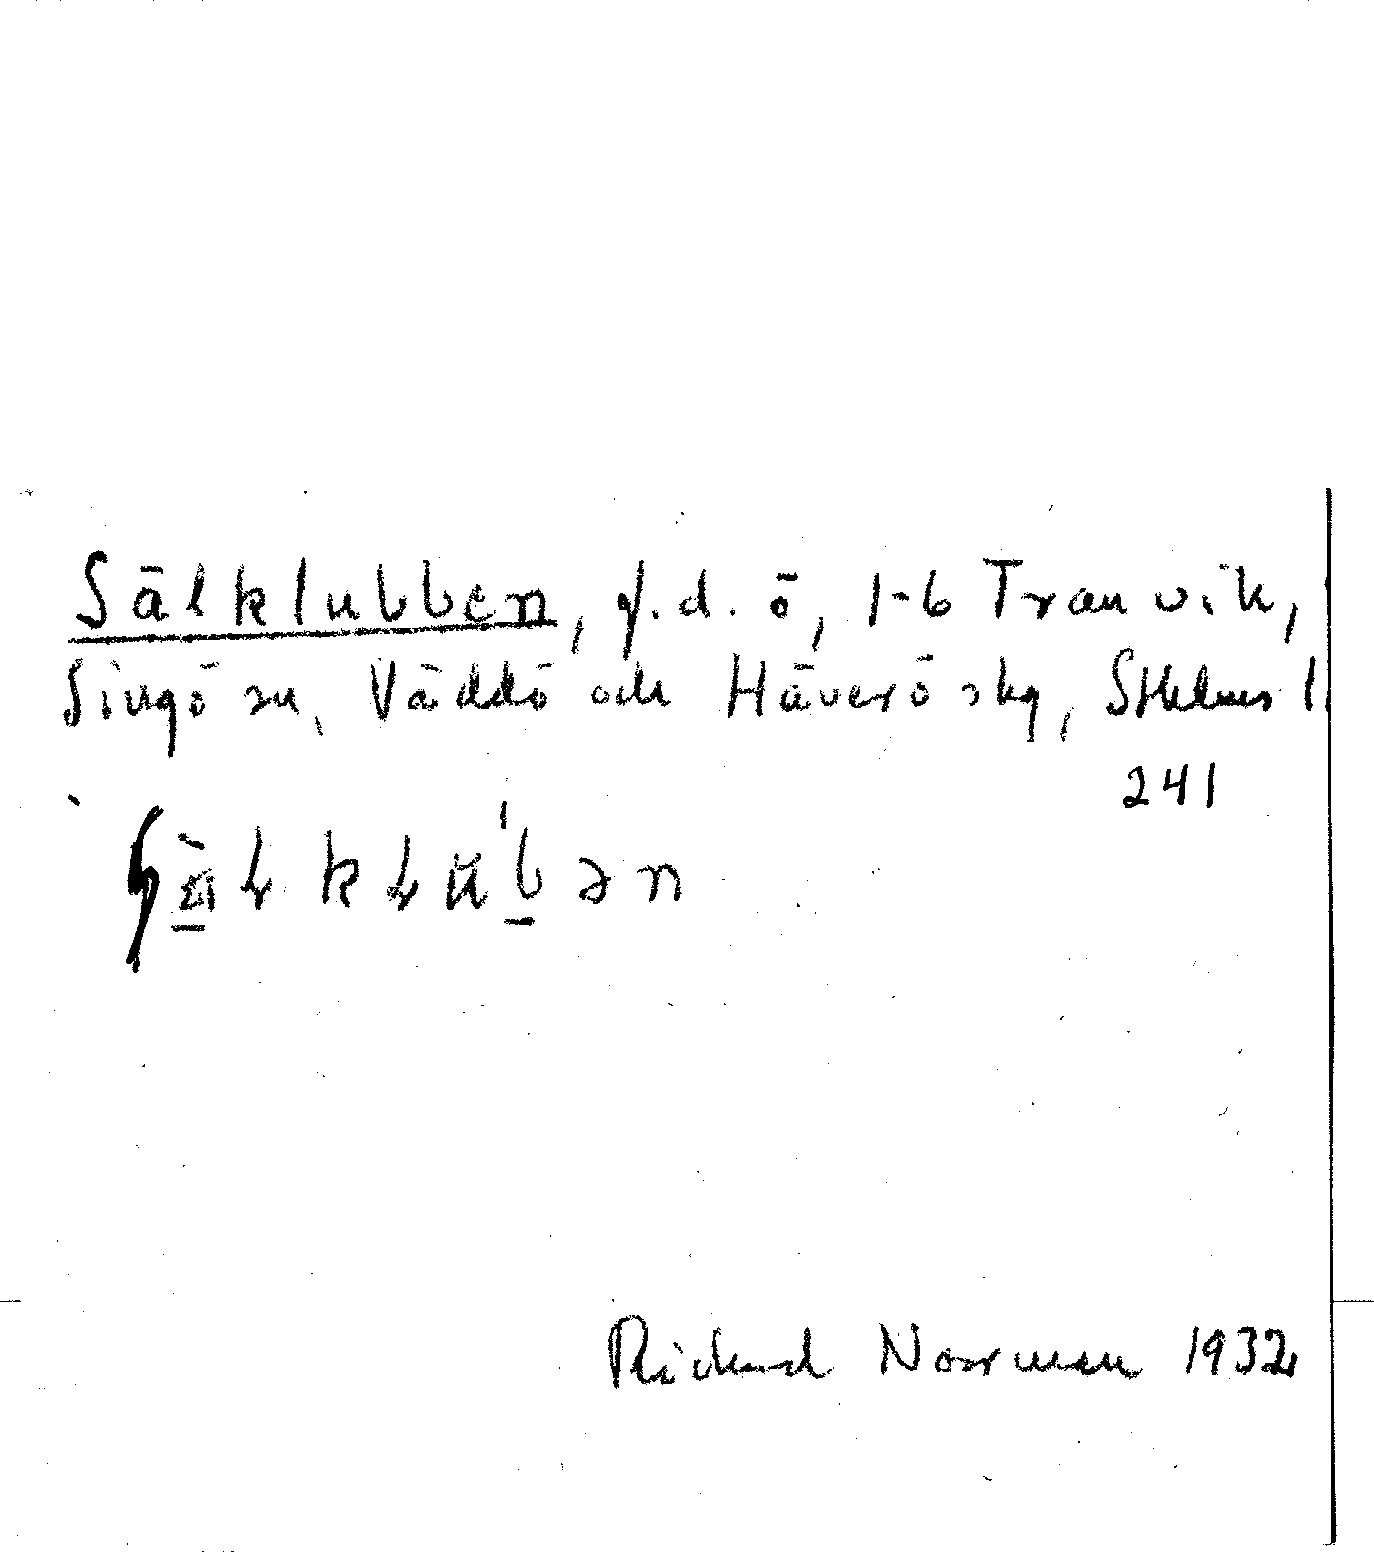 Sälklubben, f.d. ö, 1-6 Tranvik,
Singö sn, Väddö och Häverö skg, Sthlms l.
241
Richard Norrman 1932